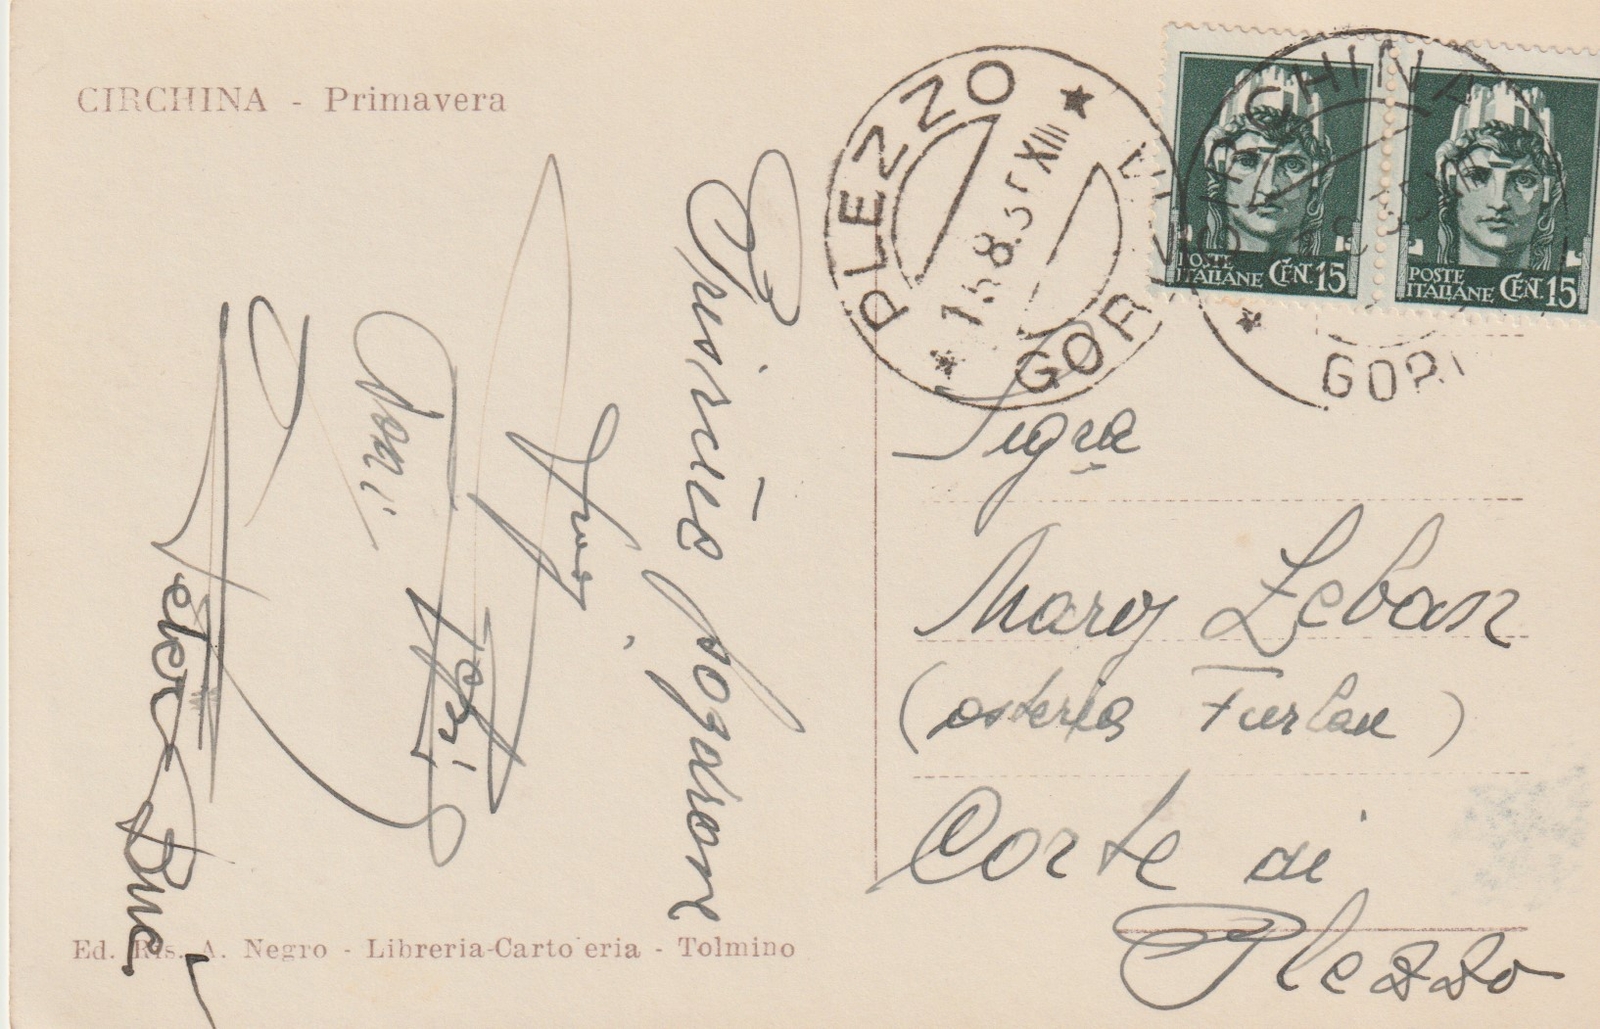 CIRCHINA - Primavera
PLEZZO
15.8.35 XIII
GORIZIA
CIRCHINA
GORI
POSTE
ITALIANE CENT. 15
POSTE
ITALIANE CENT. 15
Sigra
Mary Leban
(osteria Furlan)
Corte di
Plezzo
Prisrčno pozdravljene
Peter Duc
Ed. Ris. A. Negro - Libreria-Cartoleria - Tolmino